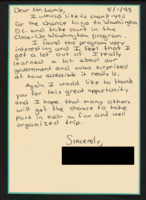 Dear Mr. Lamb, 5/1/93
I would like to thank you
for the chance to go to Washington
D.C. and take part in the
Close-Up Washington program.
I found the program very
interesting and I feel that I
got a lot out of it. I really
learned a lot about our
government and was surprised
at how accessible it really is.
Again I would like to thank
you for this great opportunity
and I hope that many others
will get the chance to take
part in such a fun and well
organized trip.
Sincerely,